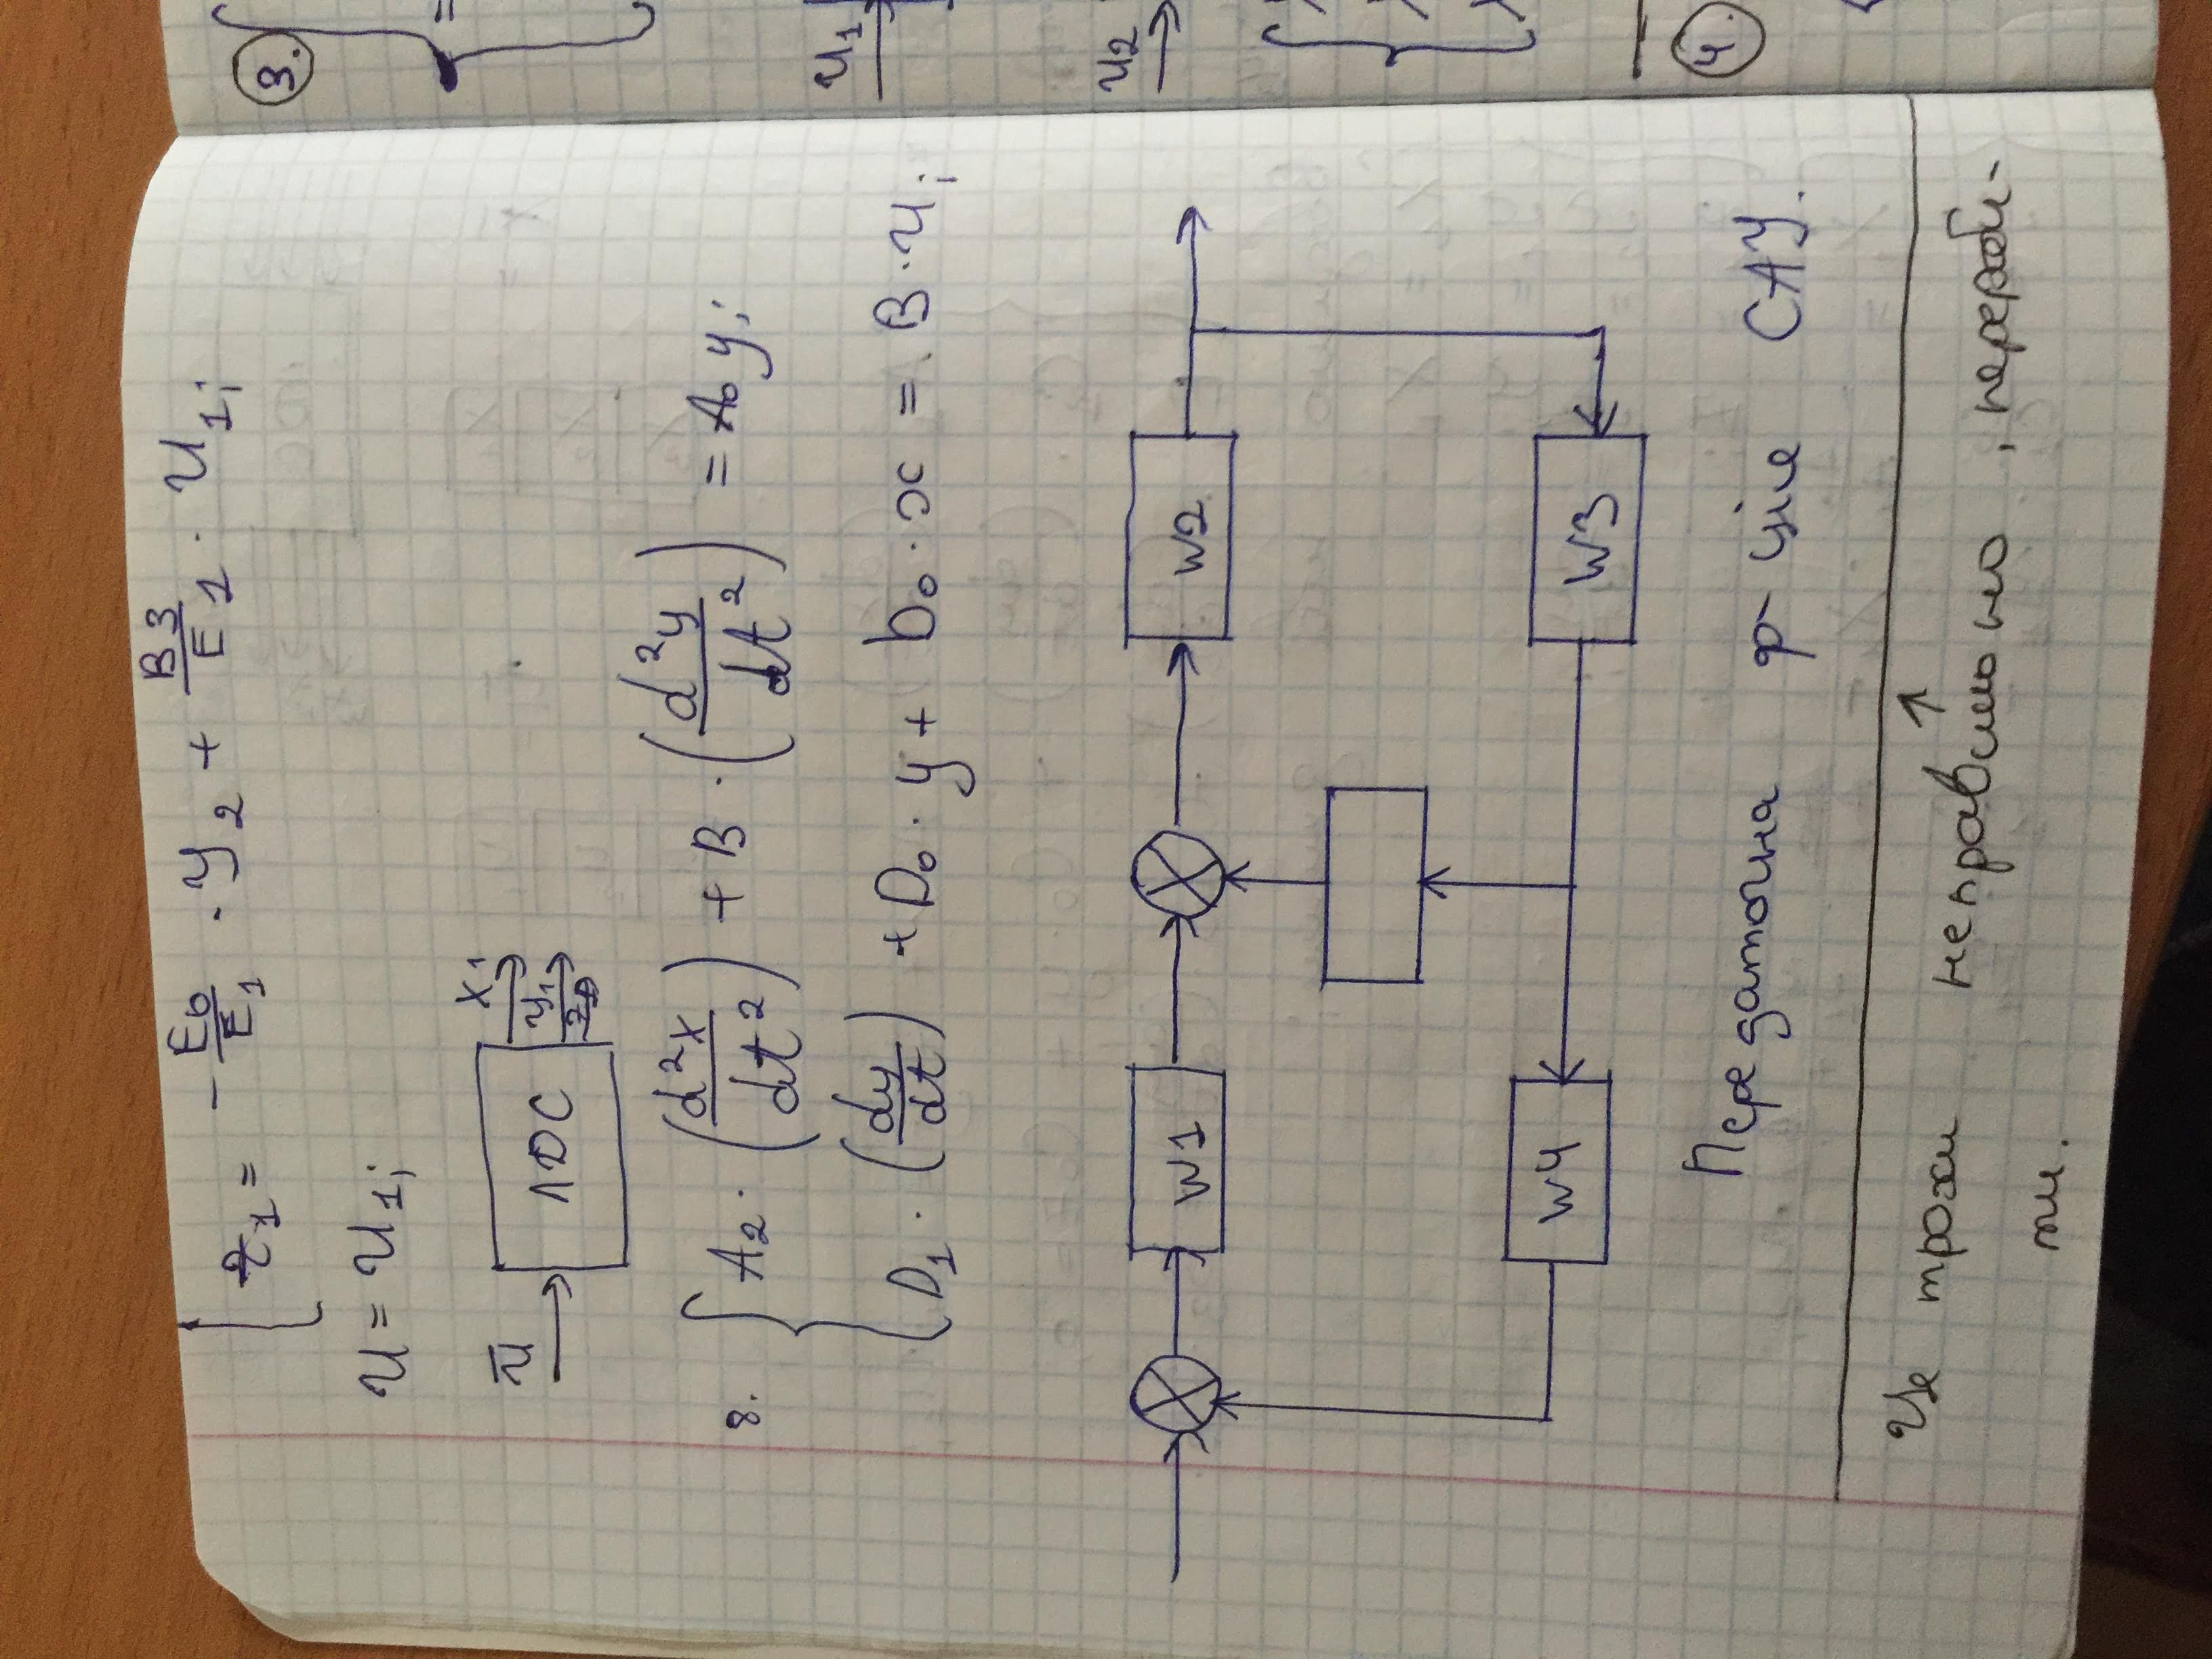 ż₁ = - E₀/E₁ · y₂ + B3/E1 · U₁;
U = U₁;
ū
ЛДС
x₁
y₁
8. { A₂ · (d²x/dt²) + B · (d²y/dt²) = A₀ y;
D₁ · (dy/dt) + D₀ · y + b₀ · x = B · U;
W1
W2
W4
W3
Передаточна ф-ція САУ.
Це трохи неправильно, перероби-
ти.
3.
=
U₁
U₂
4.